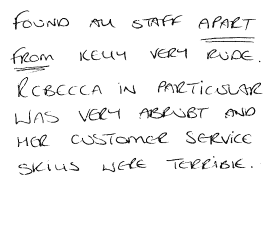 FOUND ALL STAFF APART
FROM KELLY VERY RUDE.
REBECCA IN PARTICULAR
WAS VERY ABRUBT AND
HER CUSTOMER SERVICE
SKILLS WERE TERRIBLE.